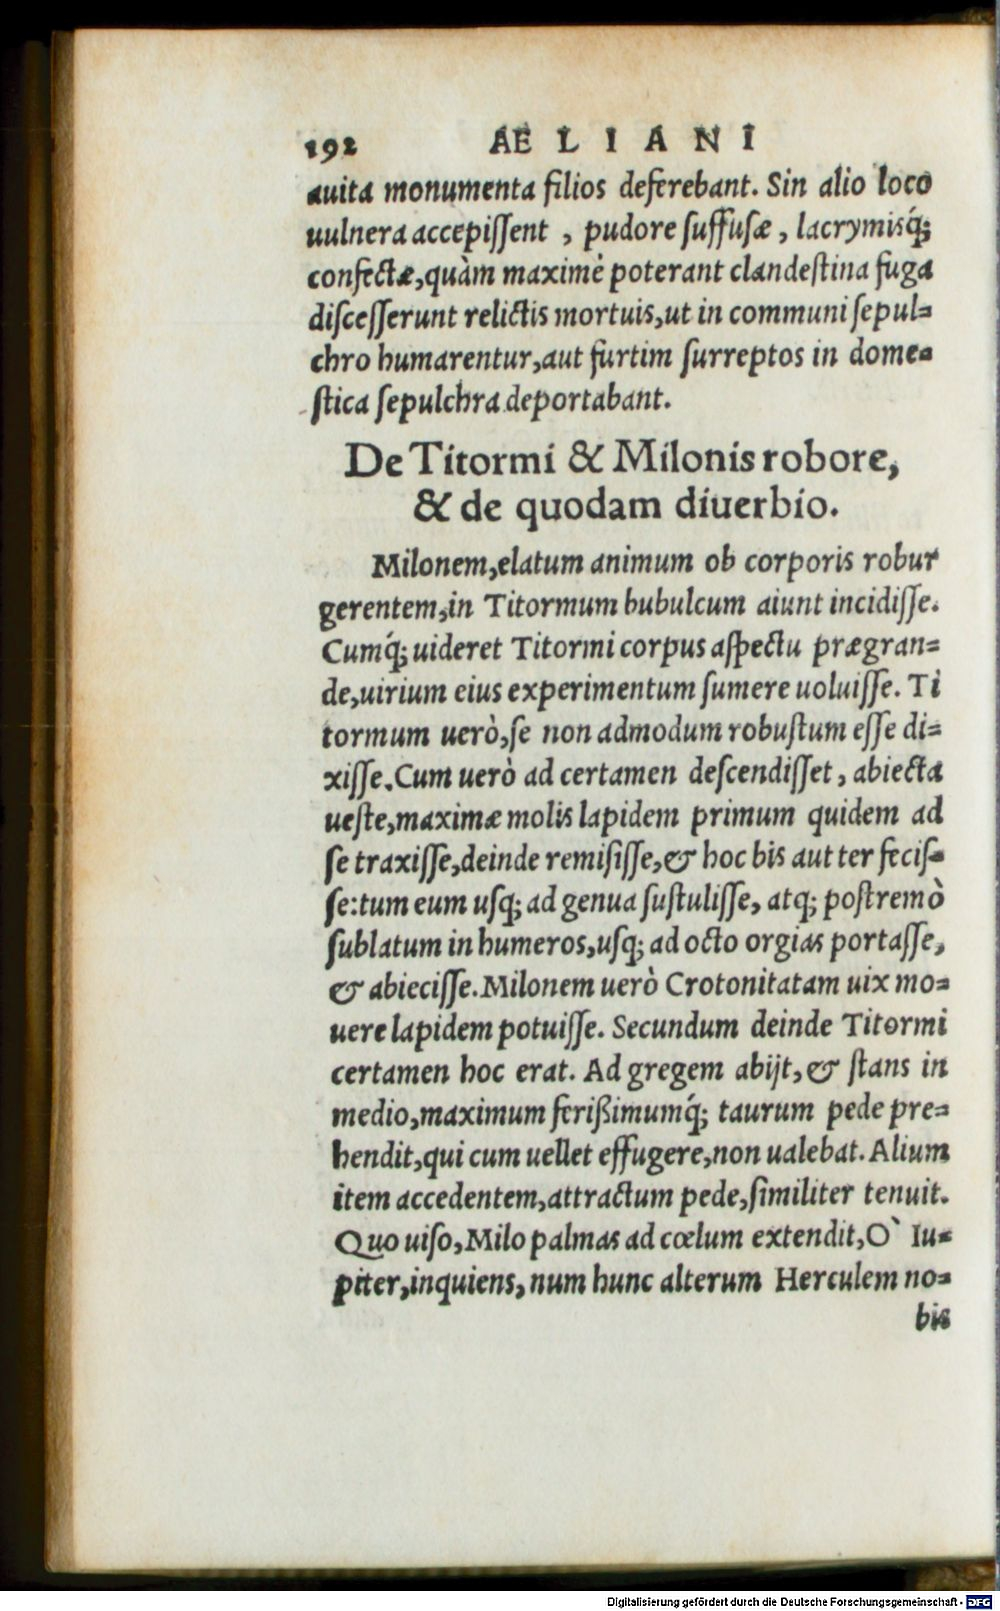 192 AELIANI
auita monumenta filios deferebant. Sin alio loco
uulnera accepiſſent, pudore ſuffuſæ, lacrymisq́;
confectæ, quàm maximè poterant clandeſtina fuga
diſceſſerunt relictis mortuis, ut in communi ſepul=
chro humarentur, aut furtim ſurreptos in dome=
ſtica ſepulchra deportabant.
De Titormi & Milonis robore,
& de quodam diuerbio.
Milonem, elatum animum ob corporis robur
gerentem, in Titormum bubulcum aiunt incidiſſe.
Cumq́; uideret Titormi corpus aſpectu prægran=
de, uirium eius experimentum ſumere uoluiſſe. Ti
tormum uerò, ſe non admodum robuſtum eſſe di=
xiſſe. Cum uerò ad certamen deſcendiſſet, abiecta
ueſte, maximæ molis lapidem primum quidem ad
ſe traxiſſe, deinde remiſiſſe, & hoc bis aut ter feciſ=
ſe: tum eum uſq; ad genua ſuſtuliſſe, atq; poſtremò
ſublatum in humeros, uſq; ad octo orgias portaſſe,
& abieciſſe. Milonem uerò Crotonitatam uix mo=
uere lapidem potuiſſe. Secundum deinde Titormi
certamen hoc erat. Ad gregem abijt, & ſtans in
medio, maximum ferißimumq́; taurum pede pre=
hendit, qui cum uellet effugere, non ualebat. Alium
item accedentem, attractum pede, ſimiliter tenuit.
Quo uiſo, Milo palmas ad cœlum extendit, Ò Iu=
piter, inquiens, num hunc alterum Herculem no=
bis
Digitalisierung gefördert durch die Deutsche Forschungsgemeinschaft - DFG